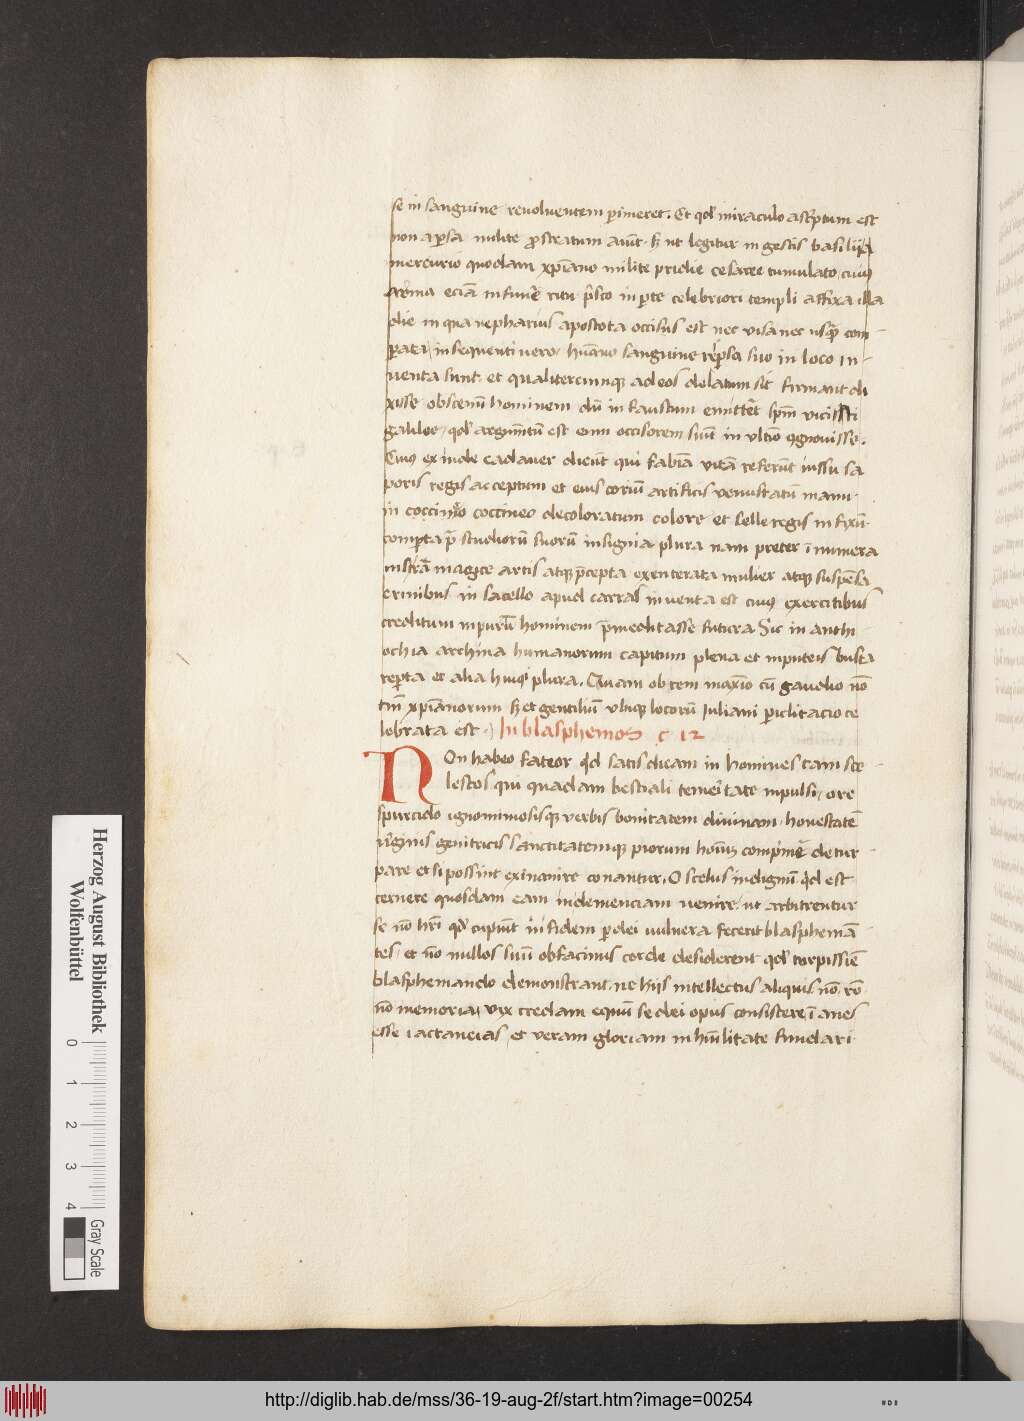 se in sanguine revoluentem perimeret. Et qd' miraculo ascptum est
non a persa milite prostratum aiūt. sʒ ut legitur in gestis basilij a
mercurio quodam xpiano milite pridie cesaree tumulato, cuius
arma eciā in funē ritu prisco in parte celebriori templi affixa illa
die in qua nepharius apostota occisus est nec visa nec usqȝ com
perata, insequenti vero humano sanguine respersa suo in loco in-
venta sunt. et qualitercumqȝ ad eos delatum sit firmant di
xisse obscenū hominem dū in faustum emitteret spm vicisti
galilee, qd' argumētū est eum occisorem suū in ultīo cognovisse.
Cuius ex inde cadaver dicūt qui fabiā vitā referūt iussu sa
poris regis acceptum et eius coriū artificis venustatū manu
in coccineo decoloratum colore et selle regis infixū
comperta studiorū suorū insignia plura nam preter īnumera
instrā magice artis atqȝ pcepta exenterata mulier atqȝ suspēsa
crinibus in sacello apud carras inventa est cuius exercitibus
creditum inpurū hominem pmeditasse futura Sic in anthi-
ochia archina humanorum capitum plena et in puteis busta
reperta et alia huiusˀ plura. Quam ob rem maxīo cū gaudio nō
tm̄ xpianorum sʒ et gentiliū ubiqȝ locorū Iuliani periclitacio ce
lebrata est. In blasphemos c 12
NOn habeo fateor qd satis dicam in homines tam sce-
lestos qui quadam bestiali temeritate inpulsi, ore
spurcido ignominiosisqȝ verbis bonitatem divinam. honestatē
virginis genitricis sanctitatemqȝ piorum hominū comprimē detur-
pare et si possint exinanire conantur. O scelus indignū qd est
cernere quosdam eam in demenciam venire, ut arbitrentur
se nō hr̄i qd' cupiūt ni fidem per dei vulnera fecerit blasphemā-
tes, et nō nullos suū ob facinus corde desiderent qd' turpissīē
blasphemando demonstrant. ne hijs intellectus aliquis nō rō
nō memoria, vix credam equū se dei opus consistere ī aues
esse iactancias, et veram gloriam in humilitate fundari
Herzog August Bibliothek
Wolfenbüttel
0 1 2 3 4
Gray Scale
http://diglib.hab.de/mss/36-19-aug-2f/start.htm?image=00254